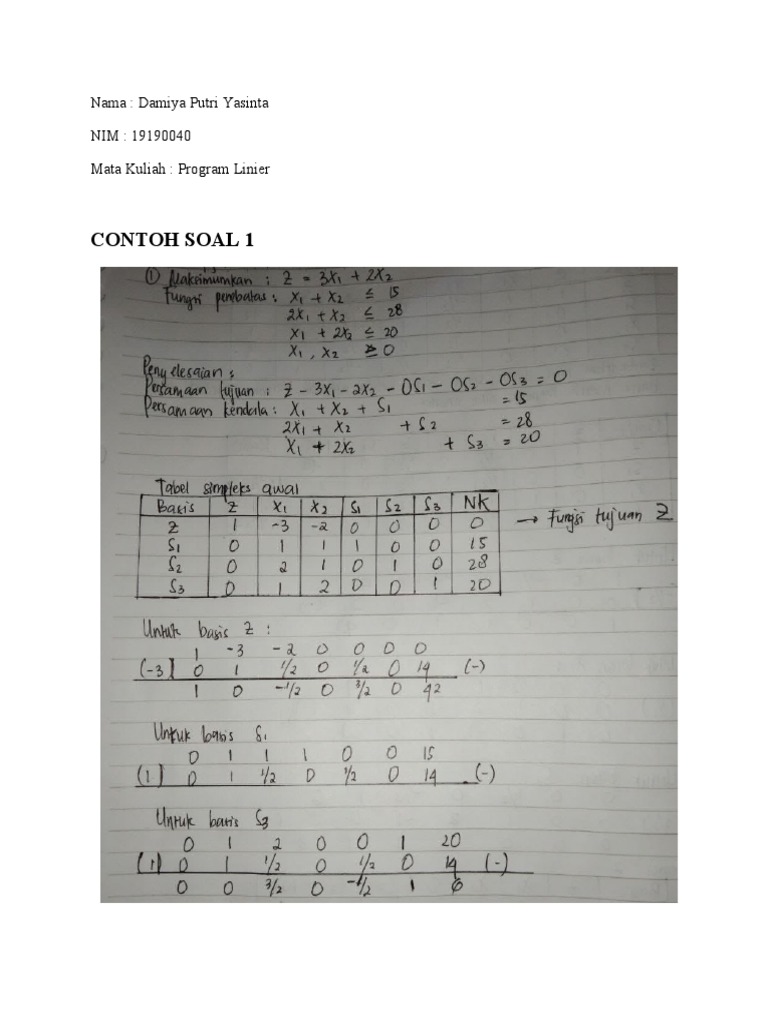 Nama : Damiya Putri Yasinta
NIM : 19190040
Mata Kuliah : Program Linier
CONTOH SOAL 1
① Maksimumkan : Z = 3X1 + 2X2
Fungsi pembatas : X1 + X2 ≤ 15
2X1 + X2 ≤ 28
X1 + 2X2 ≤ 20
X1 , X2 ≥ 0
Penyelesaian :
Persamaan tujuan : Z - 3X1 - 2X2 - OS1 - OS2 - OS3 = 0
Persamaan kendala : X1 + X2 + S1 = 15
2X1 + X2 + S2 = 28
X1 + 2X2 + S3 = 20
Tabel simpleks awal
Basis Z X1 X2 S1 S2 S3 NK
Z 1 -3 -2 0 0 0 0 → Fungsi tujuan Z
S1 0 1 1 1 0 0 15
S2 0 2 1 0 1 0 28
S3 0 1 2 0 0 1 20
Untuk basis Z :
1 -3 -2 0 0 0 0
(-3) 0 1 1/2 0 1/2 0 14 (-)
1 0 -1/2 0 3/2 0 42
Untuk basis S1
0 1 1 1 0 0 15
(1) 0 1 1/2 0 1/2 0 14 (-)
Untuk basis S3
0 1 2 0 0 1 20
(1) 0 1 1/2 0 1/2 0 14 (-)
0 0 3/2 0 -1/2 1 6